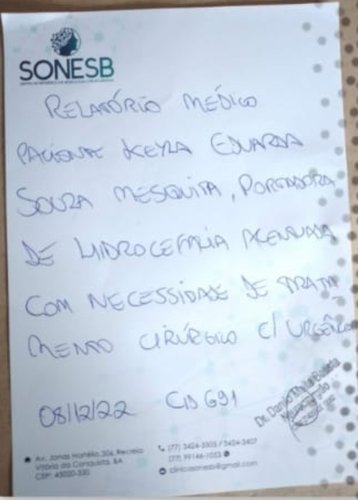 SONESB
RELATÓRIO MÉDICO
PACIENTE KEYLA EDUARDA
SOUZA MESQUITA, PORTADORA
DE HIDROCEFALIA ACENTUADA
COM NECESSIDADE DE TRATA
MENTO CIRÚRGICO C/ URGÊNCIA
08/12/22 CID G91
Av. Jonas Hortélio, 308, Recreio
Vitória da Conquista, BA
CEP: 45020-330
(77) 3424-5305 / 3424-3407
(77) 99146-1053
clinicasonesb@gmail.com
Dr.